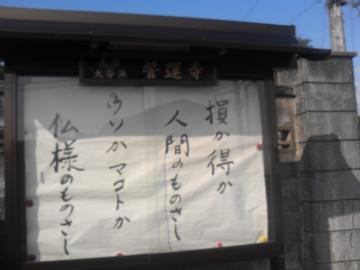 誓蓮寺
損か得か
人間のものさし
ウソか マコトか
仏様のものさし